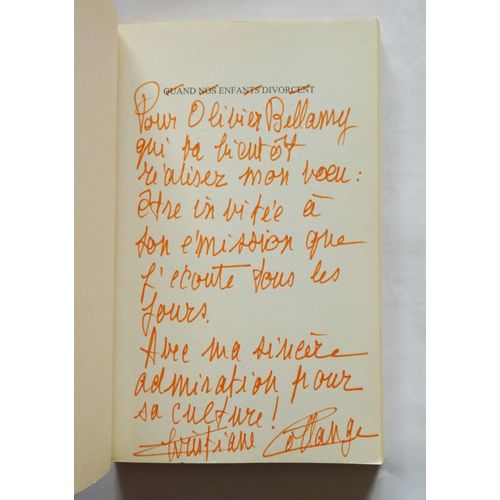 QUAND NOS ENFANTS DIVORCENT
Pour Olivier Bellamy
qui va bientôt
réaliser mon voeu :
être invitée à
son émission que
j'écoute tous les
jours.
Avec ma sincère
admiration pour
sa culture !
Christiane Collange